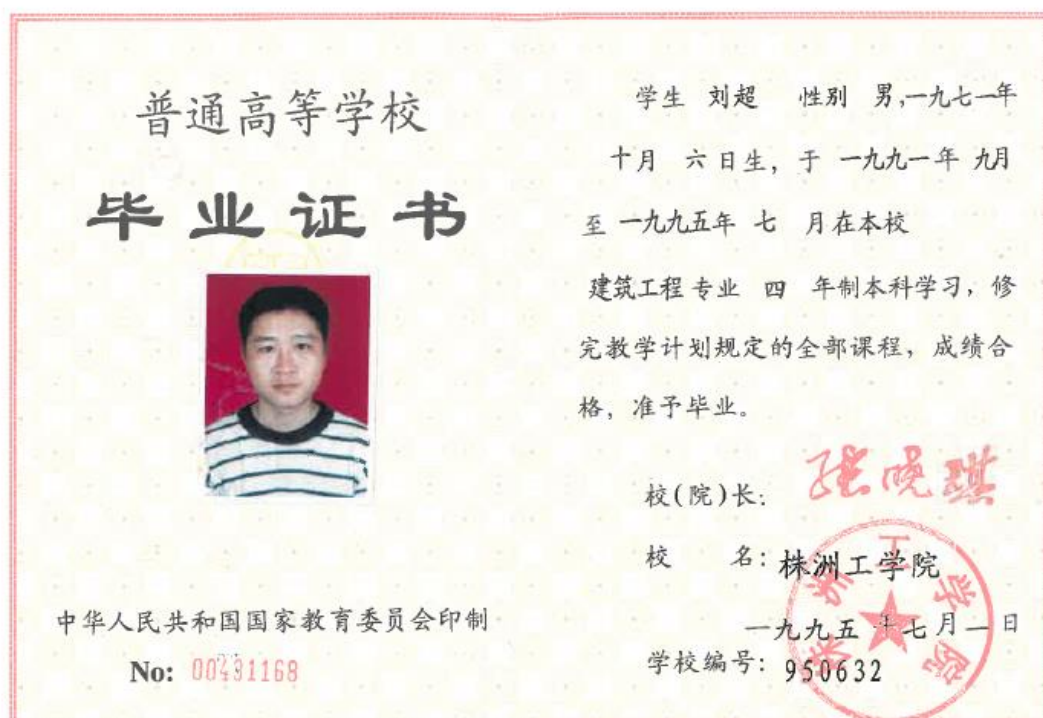 普通高等学校
毕业证书
中华人民共和国国家教育委员会印制
No: 00431168
学生 刘超 性别 男,一九七一年
十月 六日生，于 一九九一年 九月
至 一九九五年 七 月在本校
建筑工程 专业 四 年制本科学习，修
完教学计划规定的全部课程，成绩合
格，准予毕业。
校(院)长: 张晓琪
校 名: 株洲工学院
一九九五年七月一日
学校编号: 950632
株洲工学院